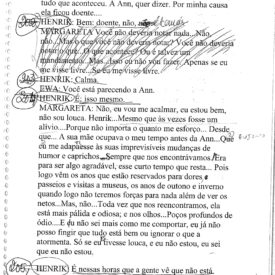 tudo que aconteceu. A Ann, quer dizer. Por minha causa
ela ficou doente....
HENRIK: Bem: doente, não,
MARGARETA: Você não deveria notar nada...Não,
não...Mas o que você não deveria notar? Você não deveria
notar o que. O que aconteceu? Ou é talvez um
mandamento. Mas...Isso eu não vou fazer. Apenas se eu
me visse livre...Se eu me visse livre.
HENRIK: Calma.
EWA: Você está parecendo a Ann.
HENRIK: É, isso mesmo.
MARGARETA: Não, eu vou me acalmar, eu estou bem,
não sou louca. Henrik...Mesmo que às vezes fosse um
alívio....Porque não importa o quanto me esforço... Desde
que... A sua mãe ocupava o meu tempo antes da Ann...Que
eu me adapasse às suas imprevisíveis mudanças de
humor e caprichos. Sempre que nos encontrávamos. Era
para ser algo agradável, esse curto tempo que resta... Pois
logo vêm os anos que estão reservados para dores,
passeios e visitas a museus, os anos de outono e inverno
quando logo não teremos forças para nada além de ver os
netos...Mas, não...Toda vez que nos reencontramos, ela
está mais pálida e odiosa; e nos olhos...Poços profundos de
ódio....E eu não sei mais como me comportar, eu já não
posso fingir que tudo está bem ou ignorar o que a
atormenta. Só se eu tivesse louca, e eu não estou, eu sei
que eu não estou.
HENRIK) É nessas horas que a gente vê que não está.